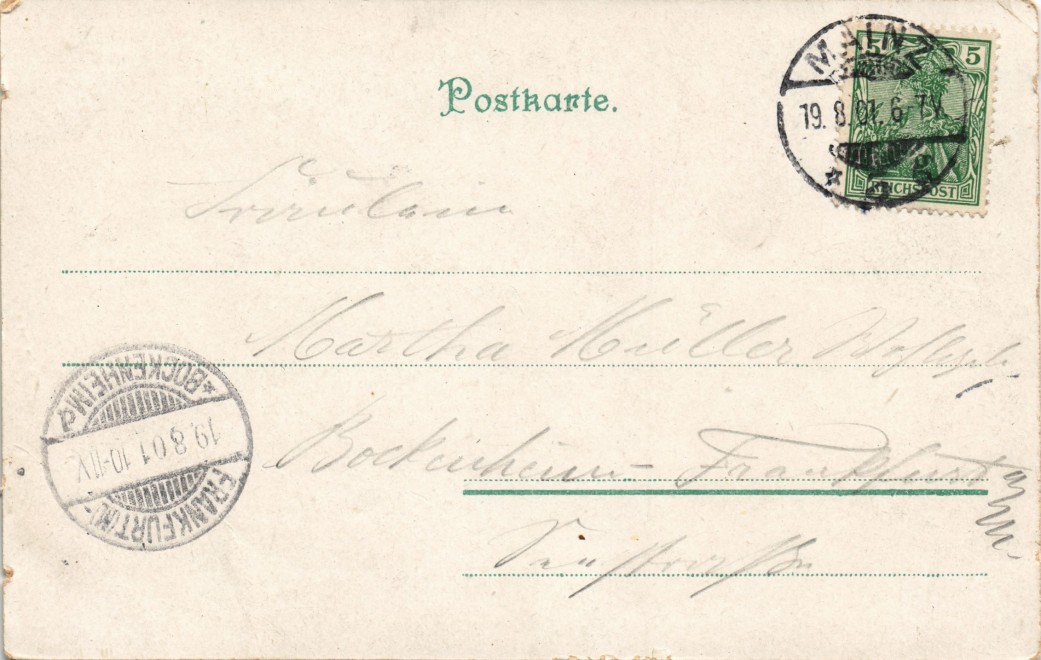 Postkarte.
MAINZ
19. 8. 01. 6-7V.
5 5
REICHSPOST
Fräulein
Martha Müller
Bockenheim - Frankfurt
*BOCKENHEIM 2
19.8.01.10-11V.
FRANKFURT(M)-